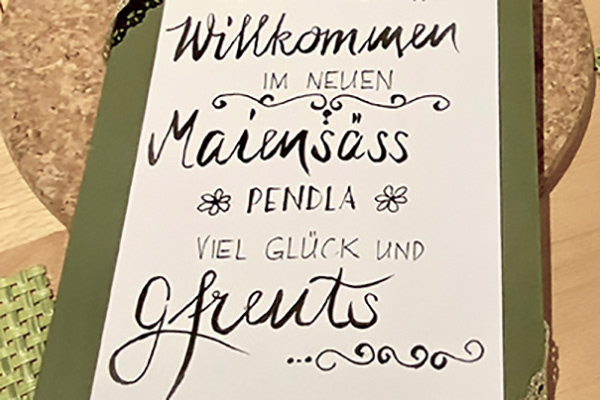 Willkommen
IM NEUEN
Maiensäss
PENDLA
VIEL GLÜCK UND
gfreuts
...